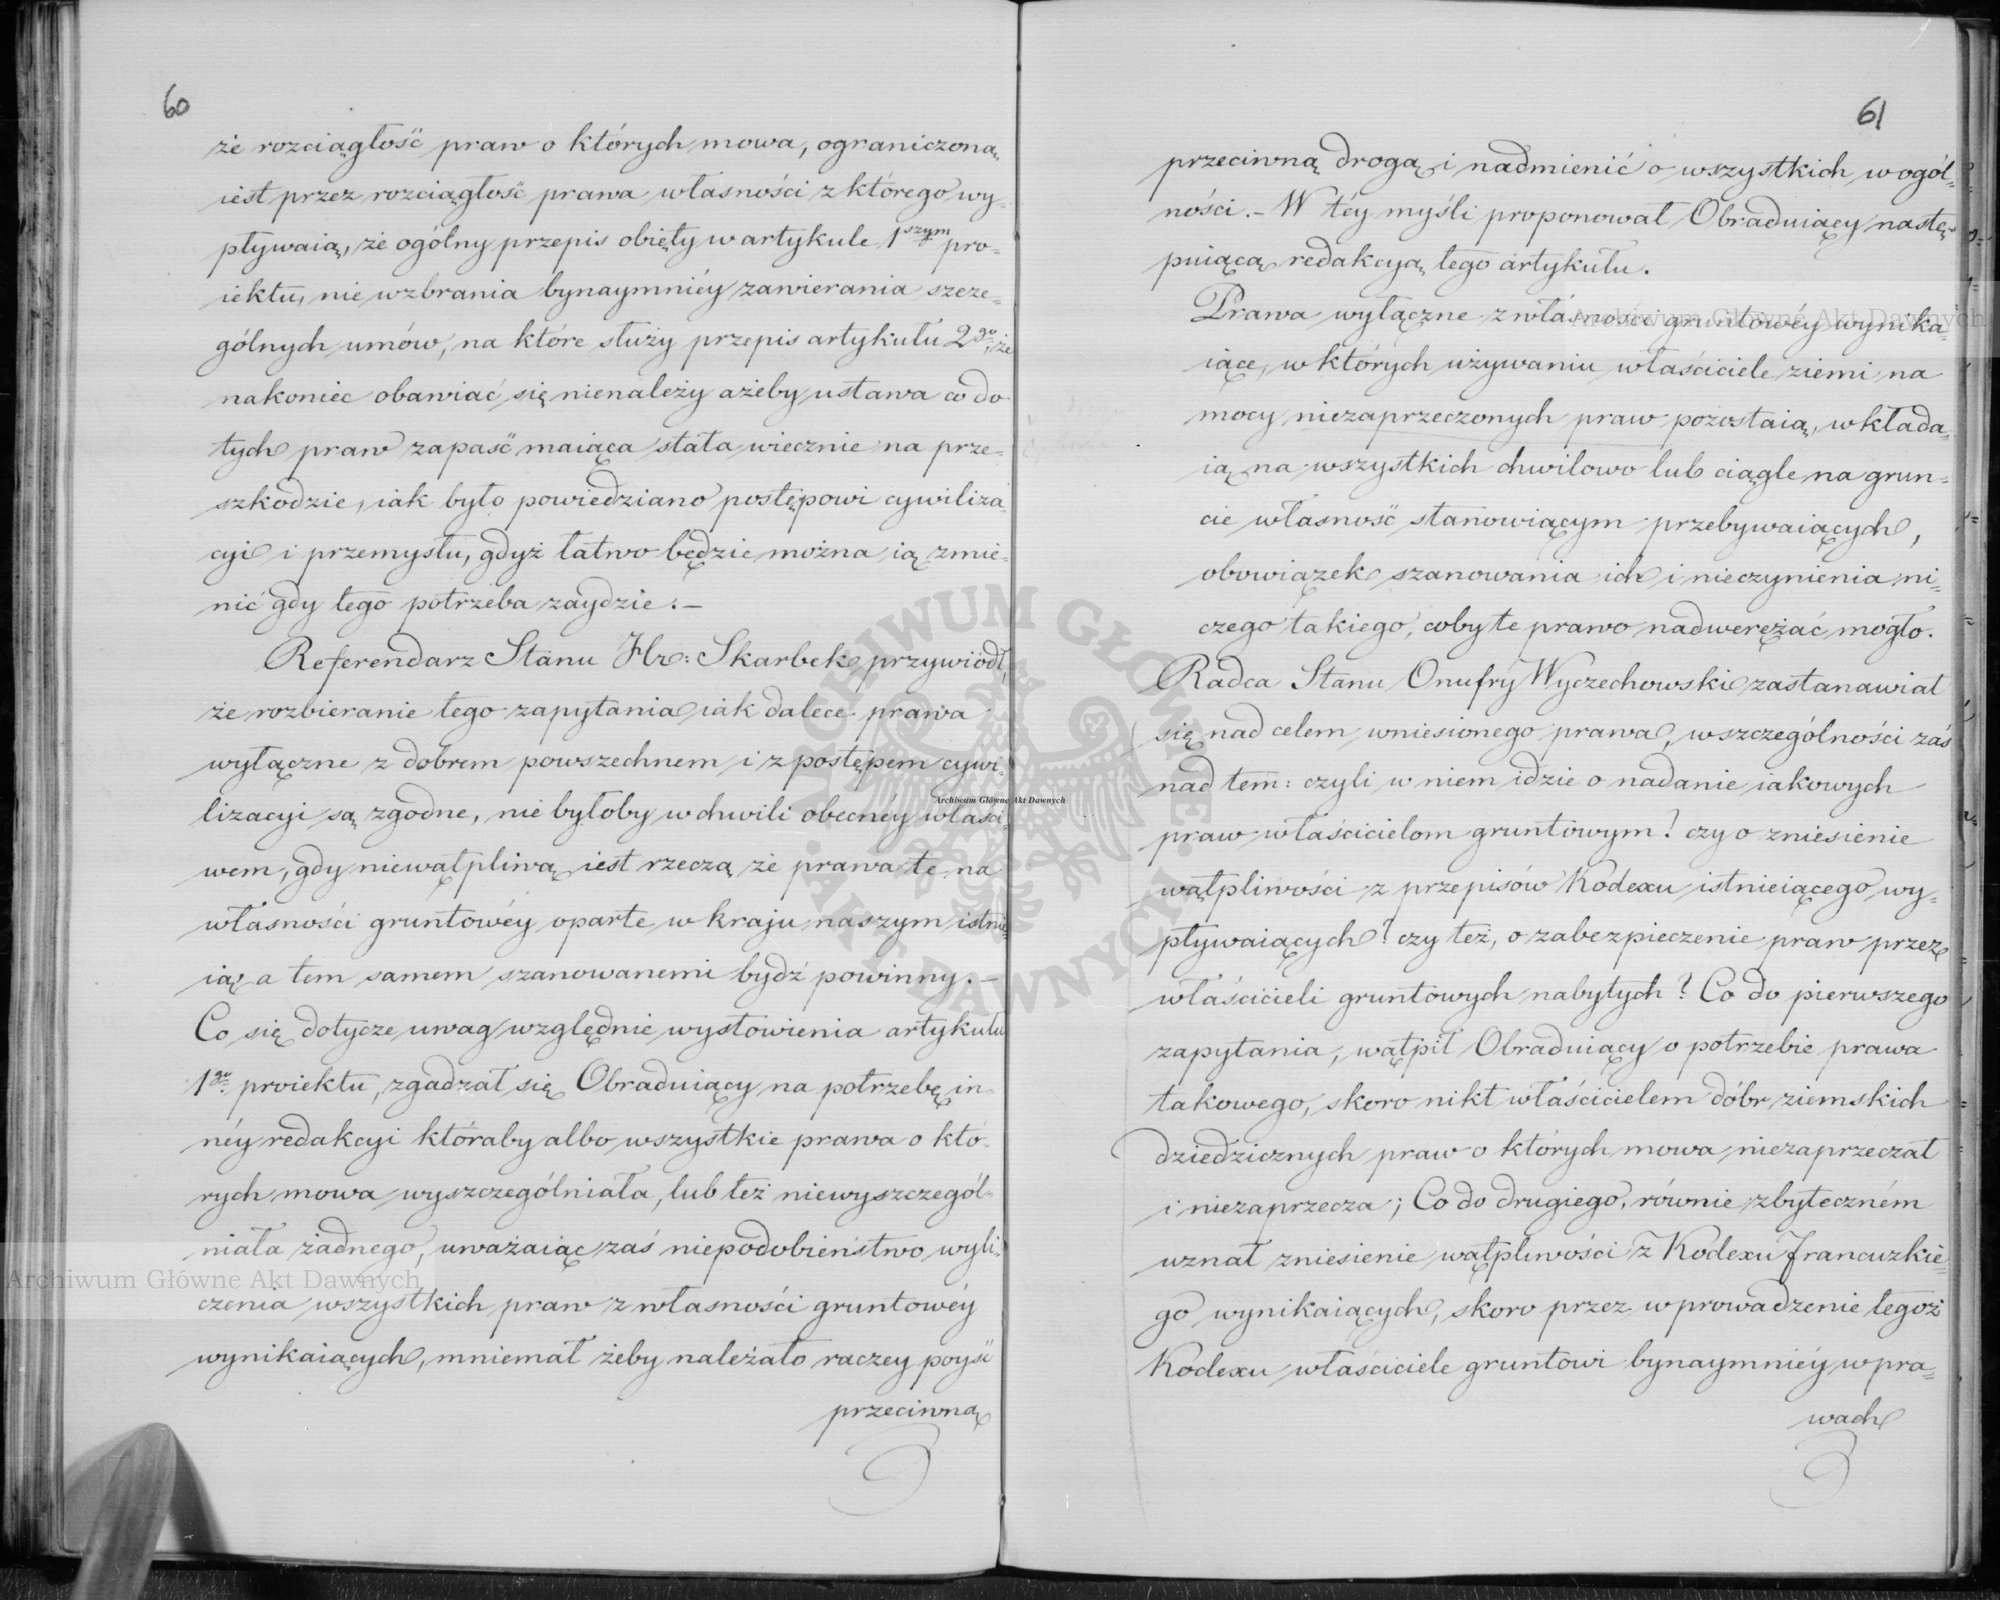 60
że rozciągłość praw o których mowa, ograniczoną
iest przez rozciągłość prawa własności z którego wy-
pływaią, że ogólny przepis obięty w artykule 1szym pro-
iektu, nie wzbrania bynaymniéy zawierania szcze-
gólnych umów, na które służy przepis artykułu 2go, że
nakoniec obawiać się nienależy ażeby ustawa co do
tych praw zapaść maiąca stała wiecznie na prze-
szkodzie, iak było powiedziano postępowi cywiliza-
cyi i przemysłu, gdyż łatwo będzie można ią zmie-
nić gdy tego potrzeba zaydzie. —
Referendarz Stanu Hr: Skarbek przywiódł,
że rozbieranie tego zapytania iak dalece prawa
wyłączne z dobrem powszechnem i z postępem cywi-
lizacyi są zgodne, nie byłoby w chwili obecnéy właści-
wem, gdy niewątpliwą iest rzeczą że prawa te na
własności gruntowéy oparte w kraju naszym istnie-
ią a tem samem szanowanemi bydź powinny. —
Co się dotycze uwag względnie wysłowienia artykułu
1go proiektu, zgadzał się Obraduiący na potrzebę in-
néy redakcyi któraby albo wszystkie prawa o któ-
rych mowa wyszczególniała, lub też niewyszczegól-
niała żadnego, uważaiąc zaś niepodobieństwo wyli-
czenia wszystkich praw z własności gruntowéy
wynikaiących, mniemał żeby należało raczey poyść
przeciwną
61
przeciwną drogą i nadmienić o wszystkich w ogól-
ności. — W téy myśli proponował Obraduiący nastę-
puiącą redakcyą tego artykułu.
Prawa wyłączne z własności gruntowéy wynika-
iące, w których używaniu właściciele ziemi na
mocy niezaprzeczonych praw pozostaią, wkłada-
ią na wszystkich chwilowo lub ciągle na grun-
cie własność stanowiącym przebywaiących,
obowiązek szanowania ich i nieczynienia ni-
czego takiego, coby te prawo nadwerężać mogło.
Radca Stanu Onufry Wyczechowski zastanawiał
się nad celem wniesionego prawa, w szczególności zaś
nad tem: czyli w niem idzie o nadanie iakowych
praw właścicielom gruntowym? czy o zniesienie
wątpliwości z przepisów Kodexu istnieiącego wy-
pływaiących? czy też, o zabezpieczenie praw przez
właścicieli gruntowych nabytych? Co do pierwszego
zapytania, wątpił Obraduiący o potrzebie prawa
takowego, skoro nikt właścicielem dóbr ziemskich
dziedzicznych praw o których mowa niezaprzeczał
i niezaprzecza; Co do drugiego, równie zbyteczném
uznał zniesienie wątpliwości z Kodexu francuzkie-
go wynikaiących, skoro przez wprowadzenie tegoż
Kodexu właściciele gruntowi bynaymniéy w pra-
wach
Archiwum Główne Akt Dawnych
Archiwum Główne Akt Dawnych
Archiwum Główne Akt Dawnych
ARCHIWUM GŁÓWNE AKT DAWNYCH